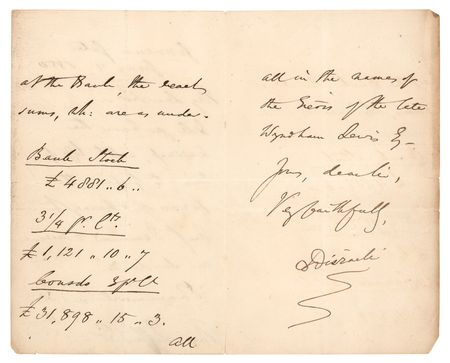 at the Bank, the exact
sums, wh: are as under.
Bank Stock
£4881 " 6 "
3 1/4 pr. Ct.
£1,121 " 10 " 7
Consols 3 pr Ct
£31,898 " 15 " 3.
all
all in the names of
the Exors of the late
Wyndham Lewis Esq
Yrs,
Very faithfully,
Disraeli